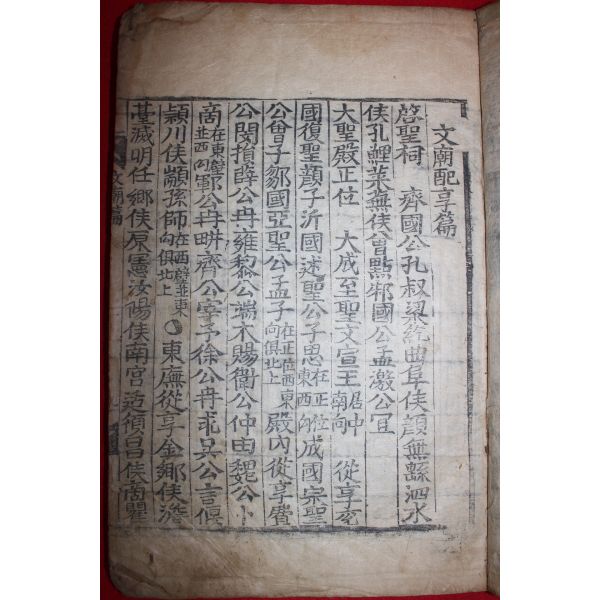 文廟配享篇
啓聖祠 齊國公孔叔梁紇曲阜侯顔無繇泗水
侯孔鯉萊無侯曾點邾國公孟激公宜
大聖殿正位 大成至聖文宣王居中南向 從享兗
國復聖顔子沂國述聖公子思在正位東西向成國宗聖
公曾子鄒國亞聖公孟子在正位西東向俱北上殿内從享費
公閔損薛公冉雍黎公端木賜衛公仲由魏公卜
商在東壁並西向鄆公冉畊齊公宰予徐公冉求吴公言偃
頴川侯顓孫師在西壁並東向俱北上 東廡從享金鄉侯澹
臺滅明任鄉侯原憲汝陽侯南宫适須昌侯商瞿
文廟篇